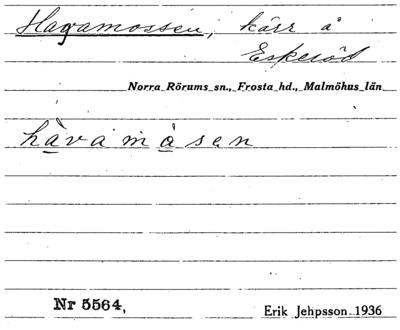 Hagamossen, kärr å
Eskeröd
Norra Rörums sn., Frosta hd., Malmöhus län
håvamåsen
Nr 5564,
Erik Jehpsson 1936